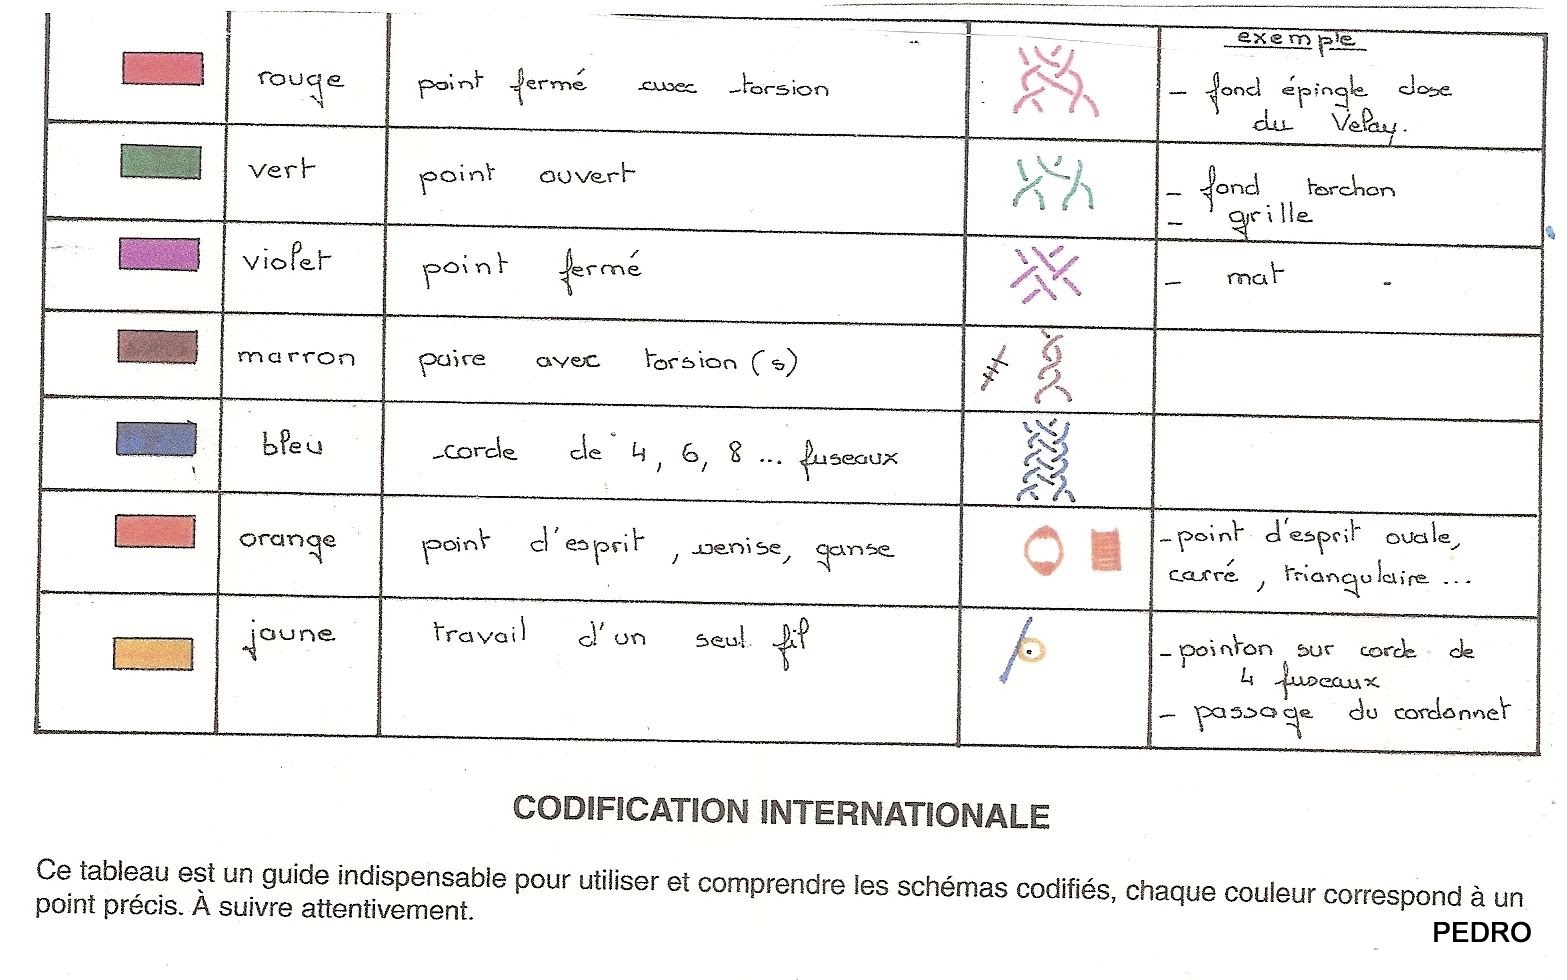 exemple
rouge point fermé avec torsion - fond épingle close
du Velay.
vert point ouvert - fond torchon
- grille
violet point fermé - mat
marron paire avec torsion (s)
bleu corde de 4, 6, 8 ... fuseaux
orange point d'esprit, venise, ganse - point d'esprit ovale,
carré, triangulaire ...
jaune travail d'un seul fil - pointon sur corde de
4 fuseaux
- passage du cordonnet
CODIFICATION INTERNATIONALE
Ce tableau est un guide indispensable pour utiliser et comprendre les schémas codifiés, chaque couleur correspond à un
point précis. À suivre attentivement.
PEDRO